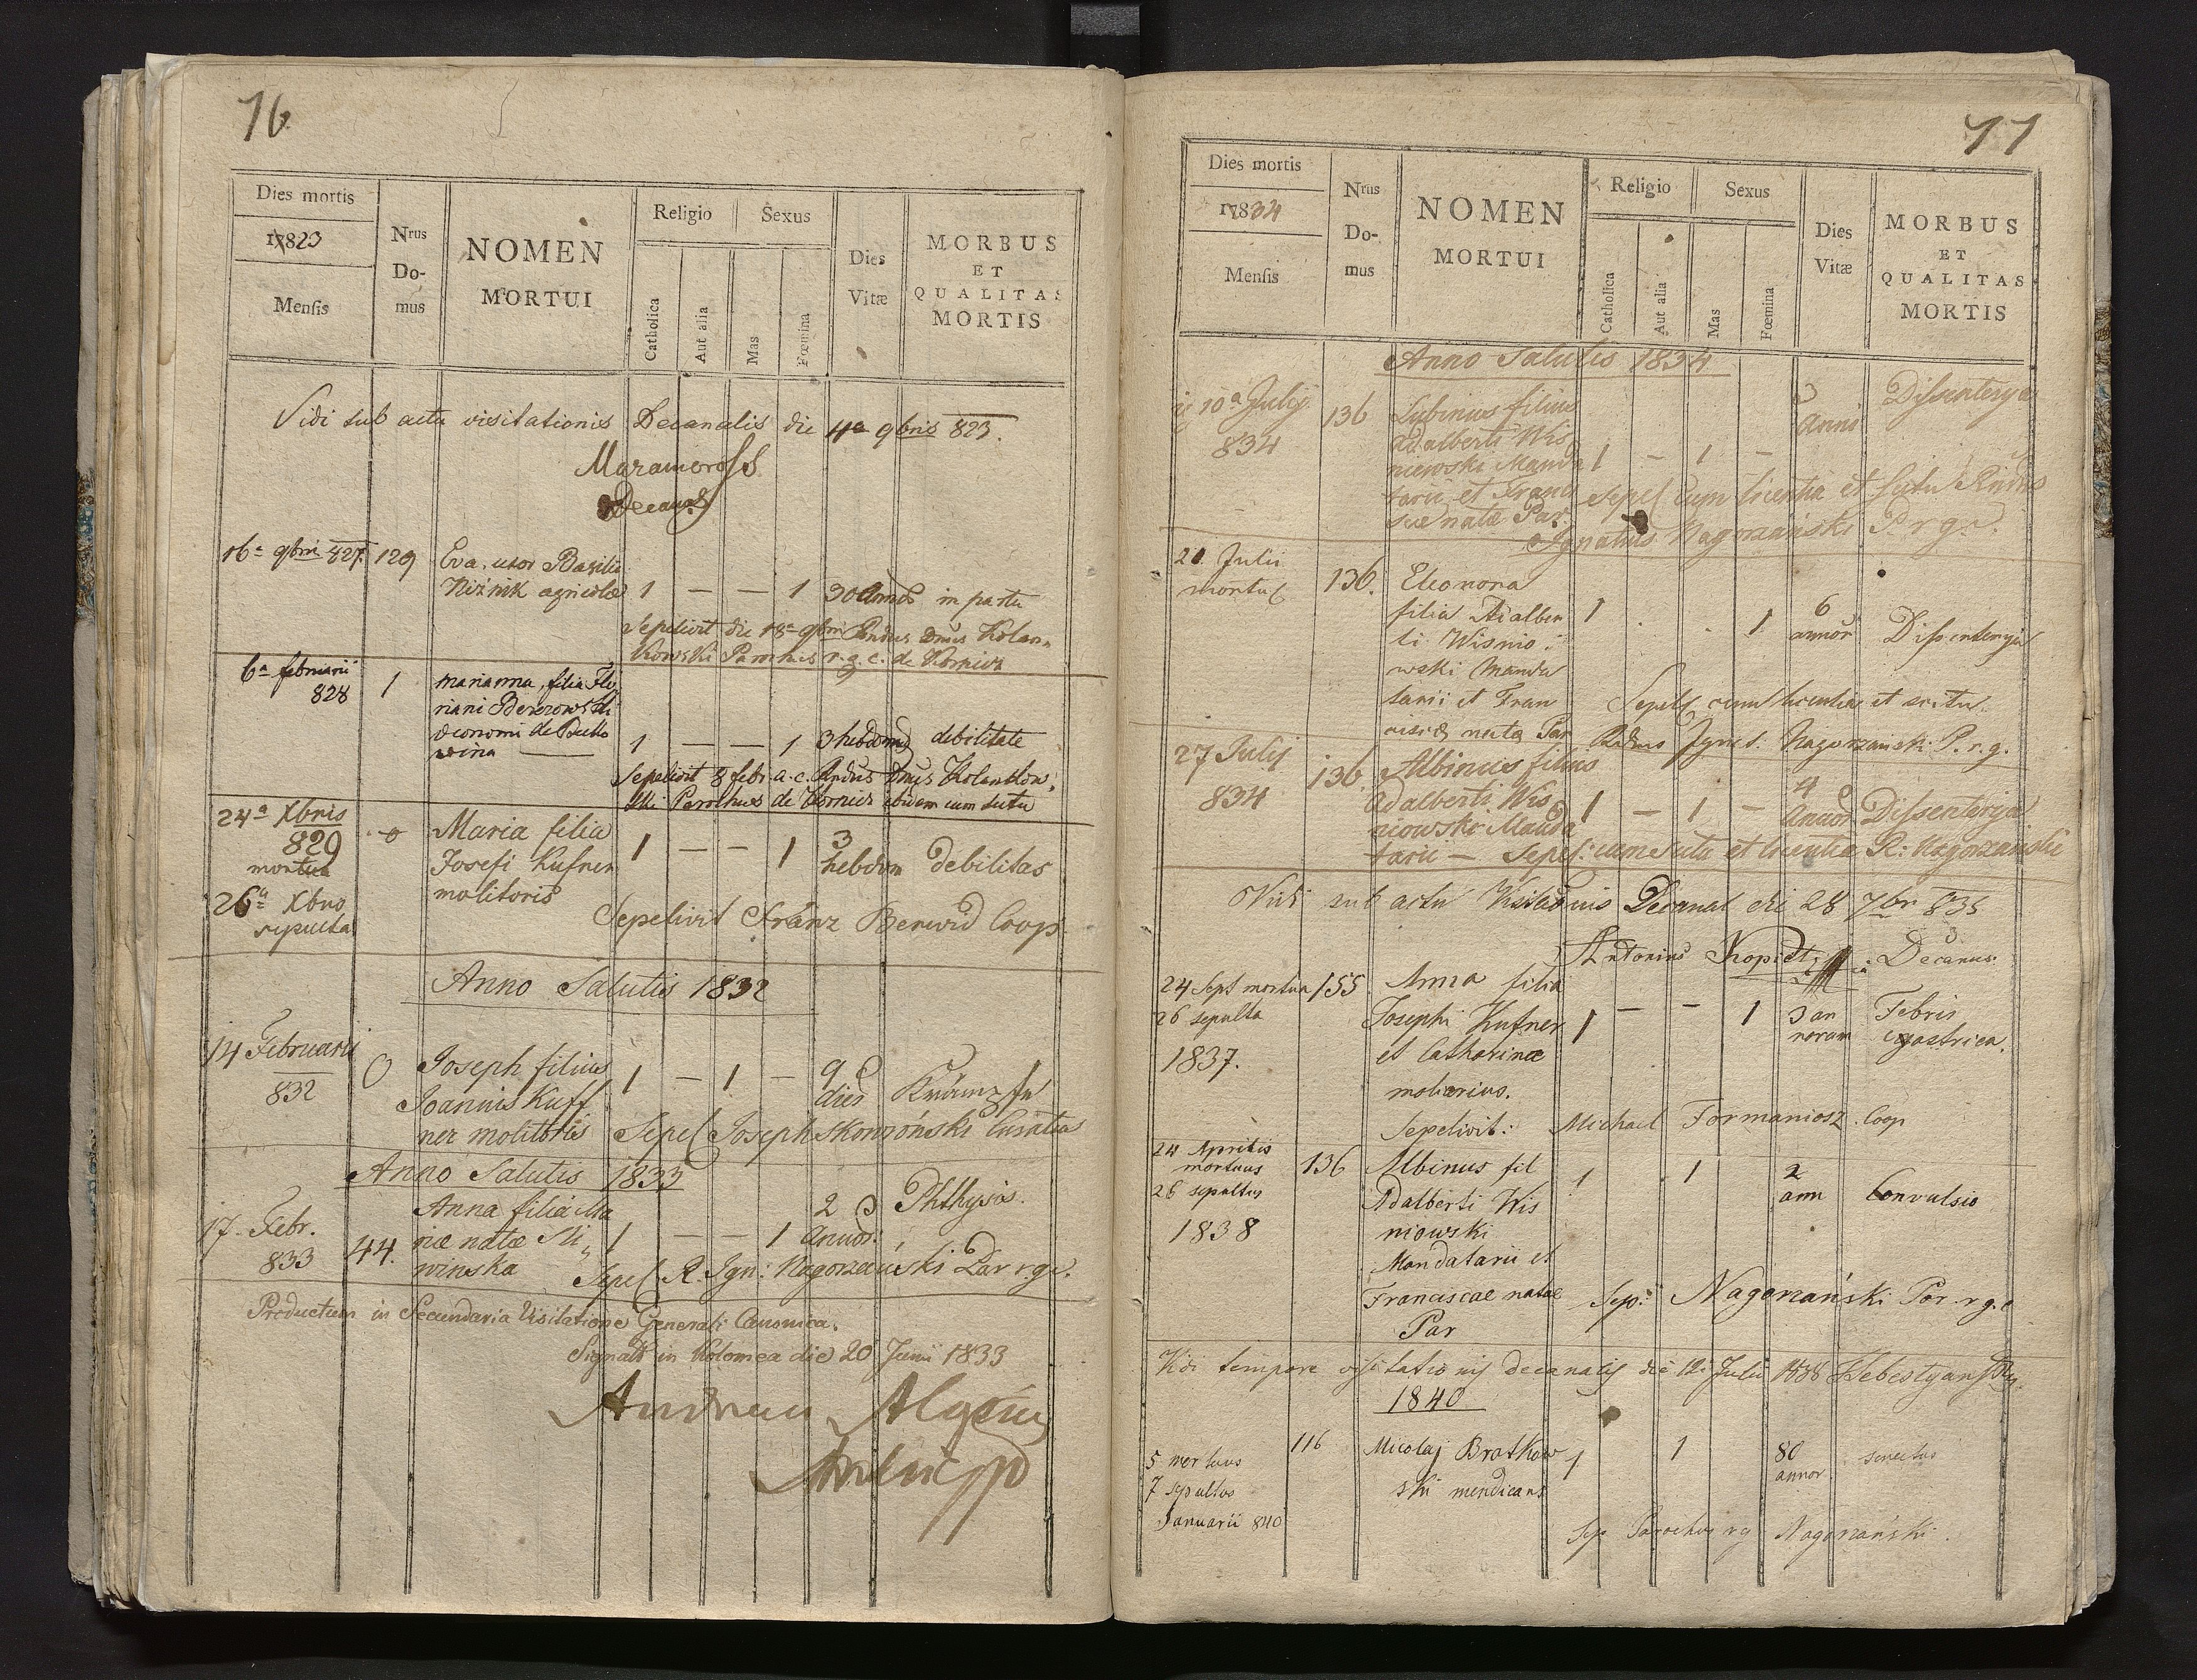 76.
Dies mortis
17823
Mensis
Nrus
Do-
mus
NOMEN
MORTUI
Religio
Sexus
Catholica
Aut alia
Mas
Fœmina
Dies
Vitæ
MORBUS
ET
QUALITAS
MORTIS
Vidi sub actu visitationis Decanalis die 4a 9bris 823.
Decanus
16a 9bris 827. 129 Eva, uxor Basilii
Niźnik agricolæ 1 — — 1 30 Annos in partu
Sepelivit die 18a 9bris Rndus Dnus Kolan„
kowski Parochus r. g. c. de Kornicz
6a februarii
828 1 Marianna, filia Flo
riani Berezowski
Oeconomi de
wina — 1 — — 1 3 hebdomad debilitate
Sepelivit 8 febr. a. c. Rndus Dnus Kolankow„
ski Parochus de Kornicz ibidem cum scitu
24a Xbris
829
mortua
26a Xbris
sepulta
o Maria filia
Josefi Kufner
molitoris
1 — — 1 3
hebdom debilitas
Sepelivit Franz Berwid Coop.
Anno Salutis 1832
14 Februarii
832
0 Joseph filius
Joannis Kuff
ner molitoris
1 — 1 — 9
dies
Sepel Joseph Skomroński Curatus
Anno Salutis 1833
17. Febr.
833 44.
Anna filia Ma
riæ natæ Sli„
winska
1 — — 1 2
Annor. Phthysis.
Sepel R. Ign: Nagorzański Par r. g. c.
Productum in Secundaria Visitatione Generali Canonica.
Signatt in Kolomea die 20 Junii 1833
Andreas Aloysius
77
Dies mortis
17834
Mensis
Nrus
Do-
mus
NOMEN
MORTUI
Religio
Sexus
Catholica
Aut alia
Mas
Fœmina
Dies
Vitæ
MORBUS
ET
QUALITAS
MORTIS
Anno Salutis 1834
10a Julij
834 136
filius
Adalberti Wis
niewski Manda
tarii et Franci
scæ natæ Par.
1 — 1 —
3
Anni Dissenterya
Sepel cum licentia et scitu Rndus
Ignatius Nagorzański P. r. g. c.
20 Julii
mortua 136. Eleonora
filia Adalber
ti Wisnio„
wski Manda
tarii et Fran
ciscæ natæ Par
1 . . 1 6
annor Dissenterya
Sepel cum licentia et scitu
Rndus Ignat: Nagorzanski P. r. g.
27 Julij
834 136. Albinus filius
Adalberti Wis
niowski Manda
tarii —
1 — 1 — 4
Annor Dissenterya
Sepel: cum scitu et licentia R: Nagorzanski
Vidi sub actu Visitaonis Decanal die 28 7br 835
Antonius Decanus.
24 Sept mortua 155
26 sepulta
1837.
Anna filia
Josephi Kufner
et Catharinæ
1 — — 1 3 an
norum Febris
gastrica.
Sepelivit: Michael Formaniosz Coop
24 Aprilis
mortuus
26 sepultus
1838
136 Albinus fil
Adalberti Wis
niowski
Mandatarii et
Franciscae natae
Par
1 1 2
ann Convulsio
Sep: Nagorzański Par. r g. c
Vidi tempore visitationis decanalis die 12 Julii 1838
1840
5 mortuus
7 sepultus
Januarii 840
116 Micolaj Bratkow
ski mendicans
1 1 80
annor. senectus
Sep Parochus r g Nagorzański.